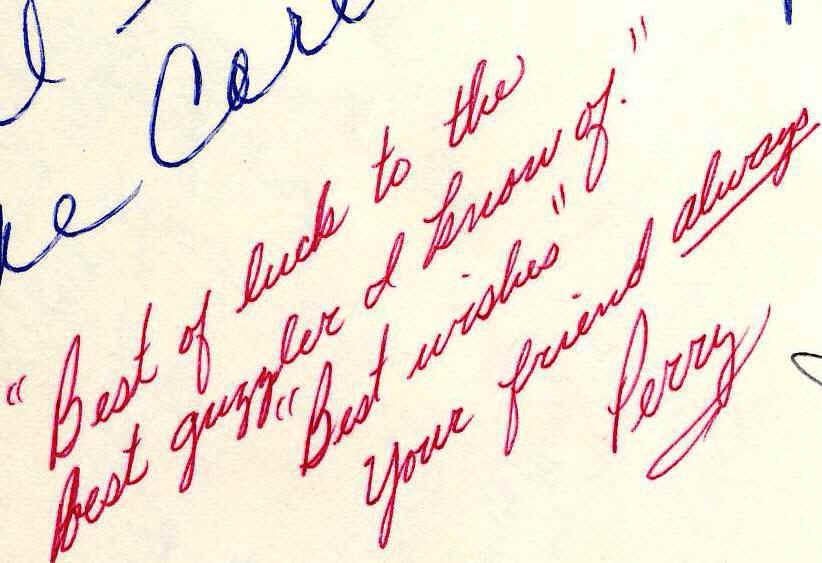 "Best of luck to the
best guzzler I know of."
"Best wishes"
Your friend always
Perry